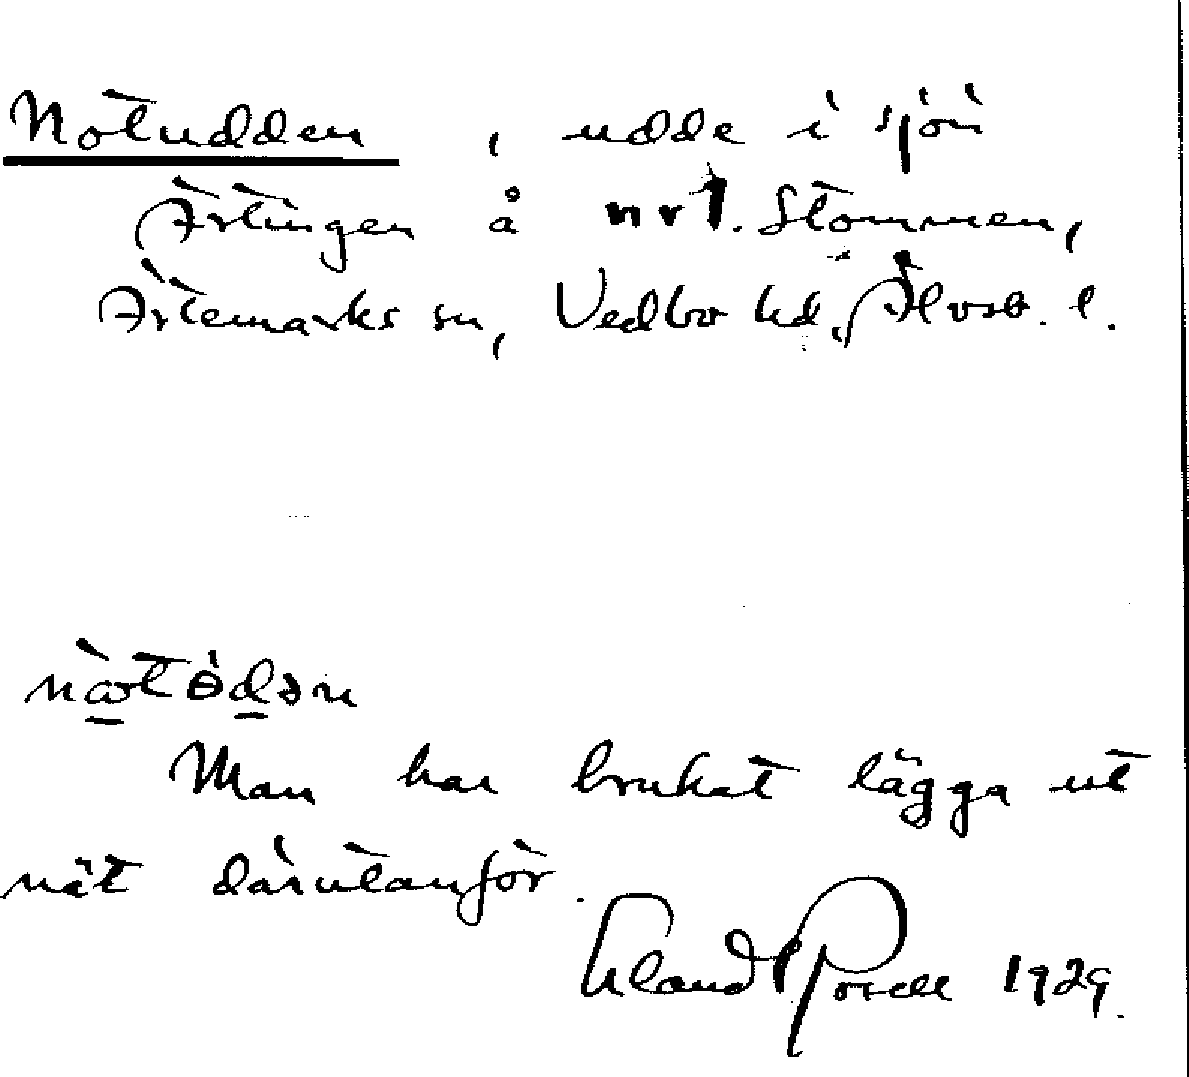 Notudden, udde i sjön
Ärtingen å nrl. Stommen,
Ärtemarks sn, Vedbo hd, Älvsb. l.
nœ̀tɵ̀dən
Man har brukat lägga ut
nät därutanför.
1929.